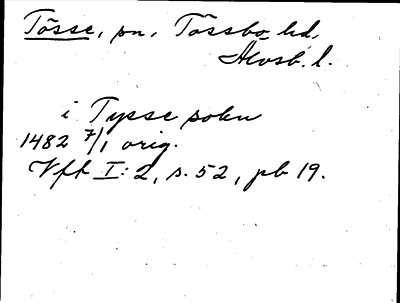 Tösse, sn, Tössbo hd,
Älvsb. l.
i Tysse sokn
1482 7/1 orig.
Vft I:2, s. 52, pb 19.